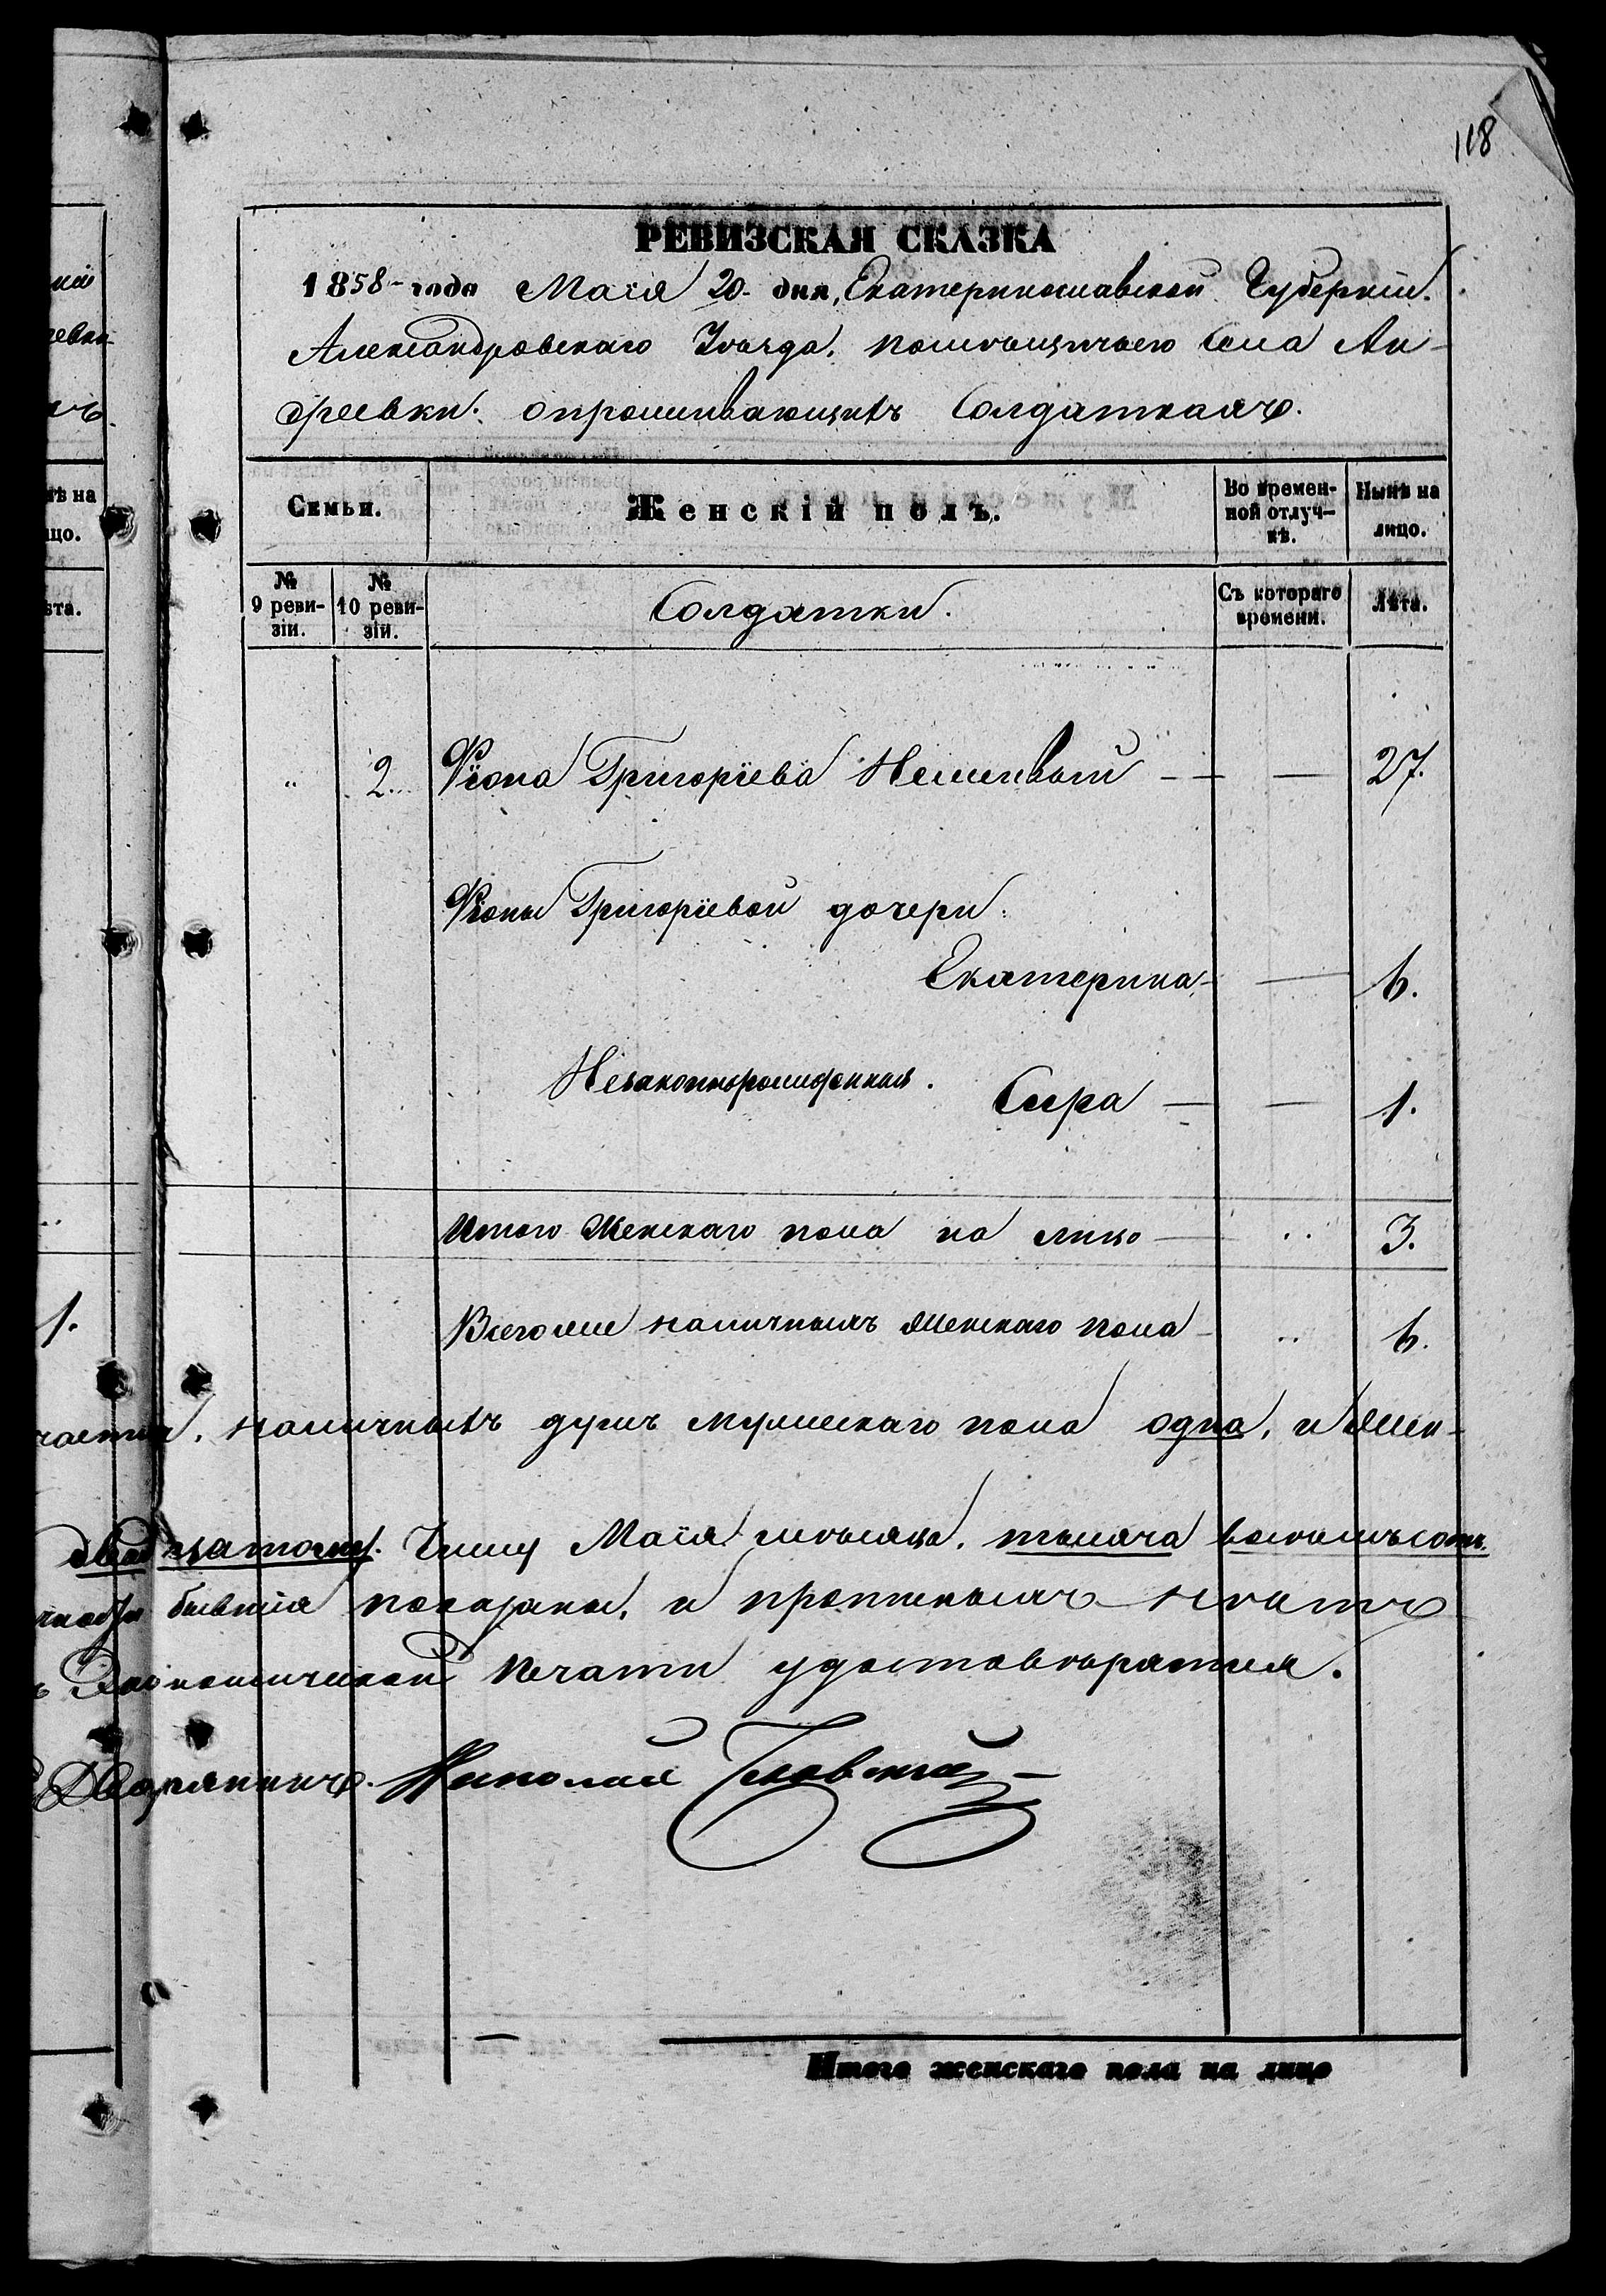 118
РЕВИЗСКАЯ СКАЗКА
1858 года Маія 20 дня, Екатеринославской Губерніи.
Александровскаго Уѣзда, помѣщичьего Села Ан-
дреевки. о проживающихъ Солдаткахъ.
Семьи. Женскій полъ. Во времен-ной отлуч-кѣ. Нынѣ на лицо.
№ 9 реви-зіи. № 10 реви-зіи. Солдатки. Съ котораго времени. Лѣта.
" 2. Ѳіона Григоріева — — 27.
Ѳіоны Григоріевой дочери:
Екатерина — — 6.
Незаконнорожденная. — — 1.
Итого Женскаго пола на лицо — .. 3.
1. Всего же наличныхъ женскаго пола — .. 6.
наличныхъ душъ мужескаго пола одна, и жен-
двадцатому. Числу Маія мѣсяца. тысяча восемьсотъ
бывшія показаны, и прописныхъ нѣтъ
Экономической печати удостовѣряется.
Дворянинъ. Николай
Итого женскаго пола на лицо